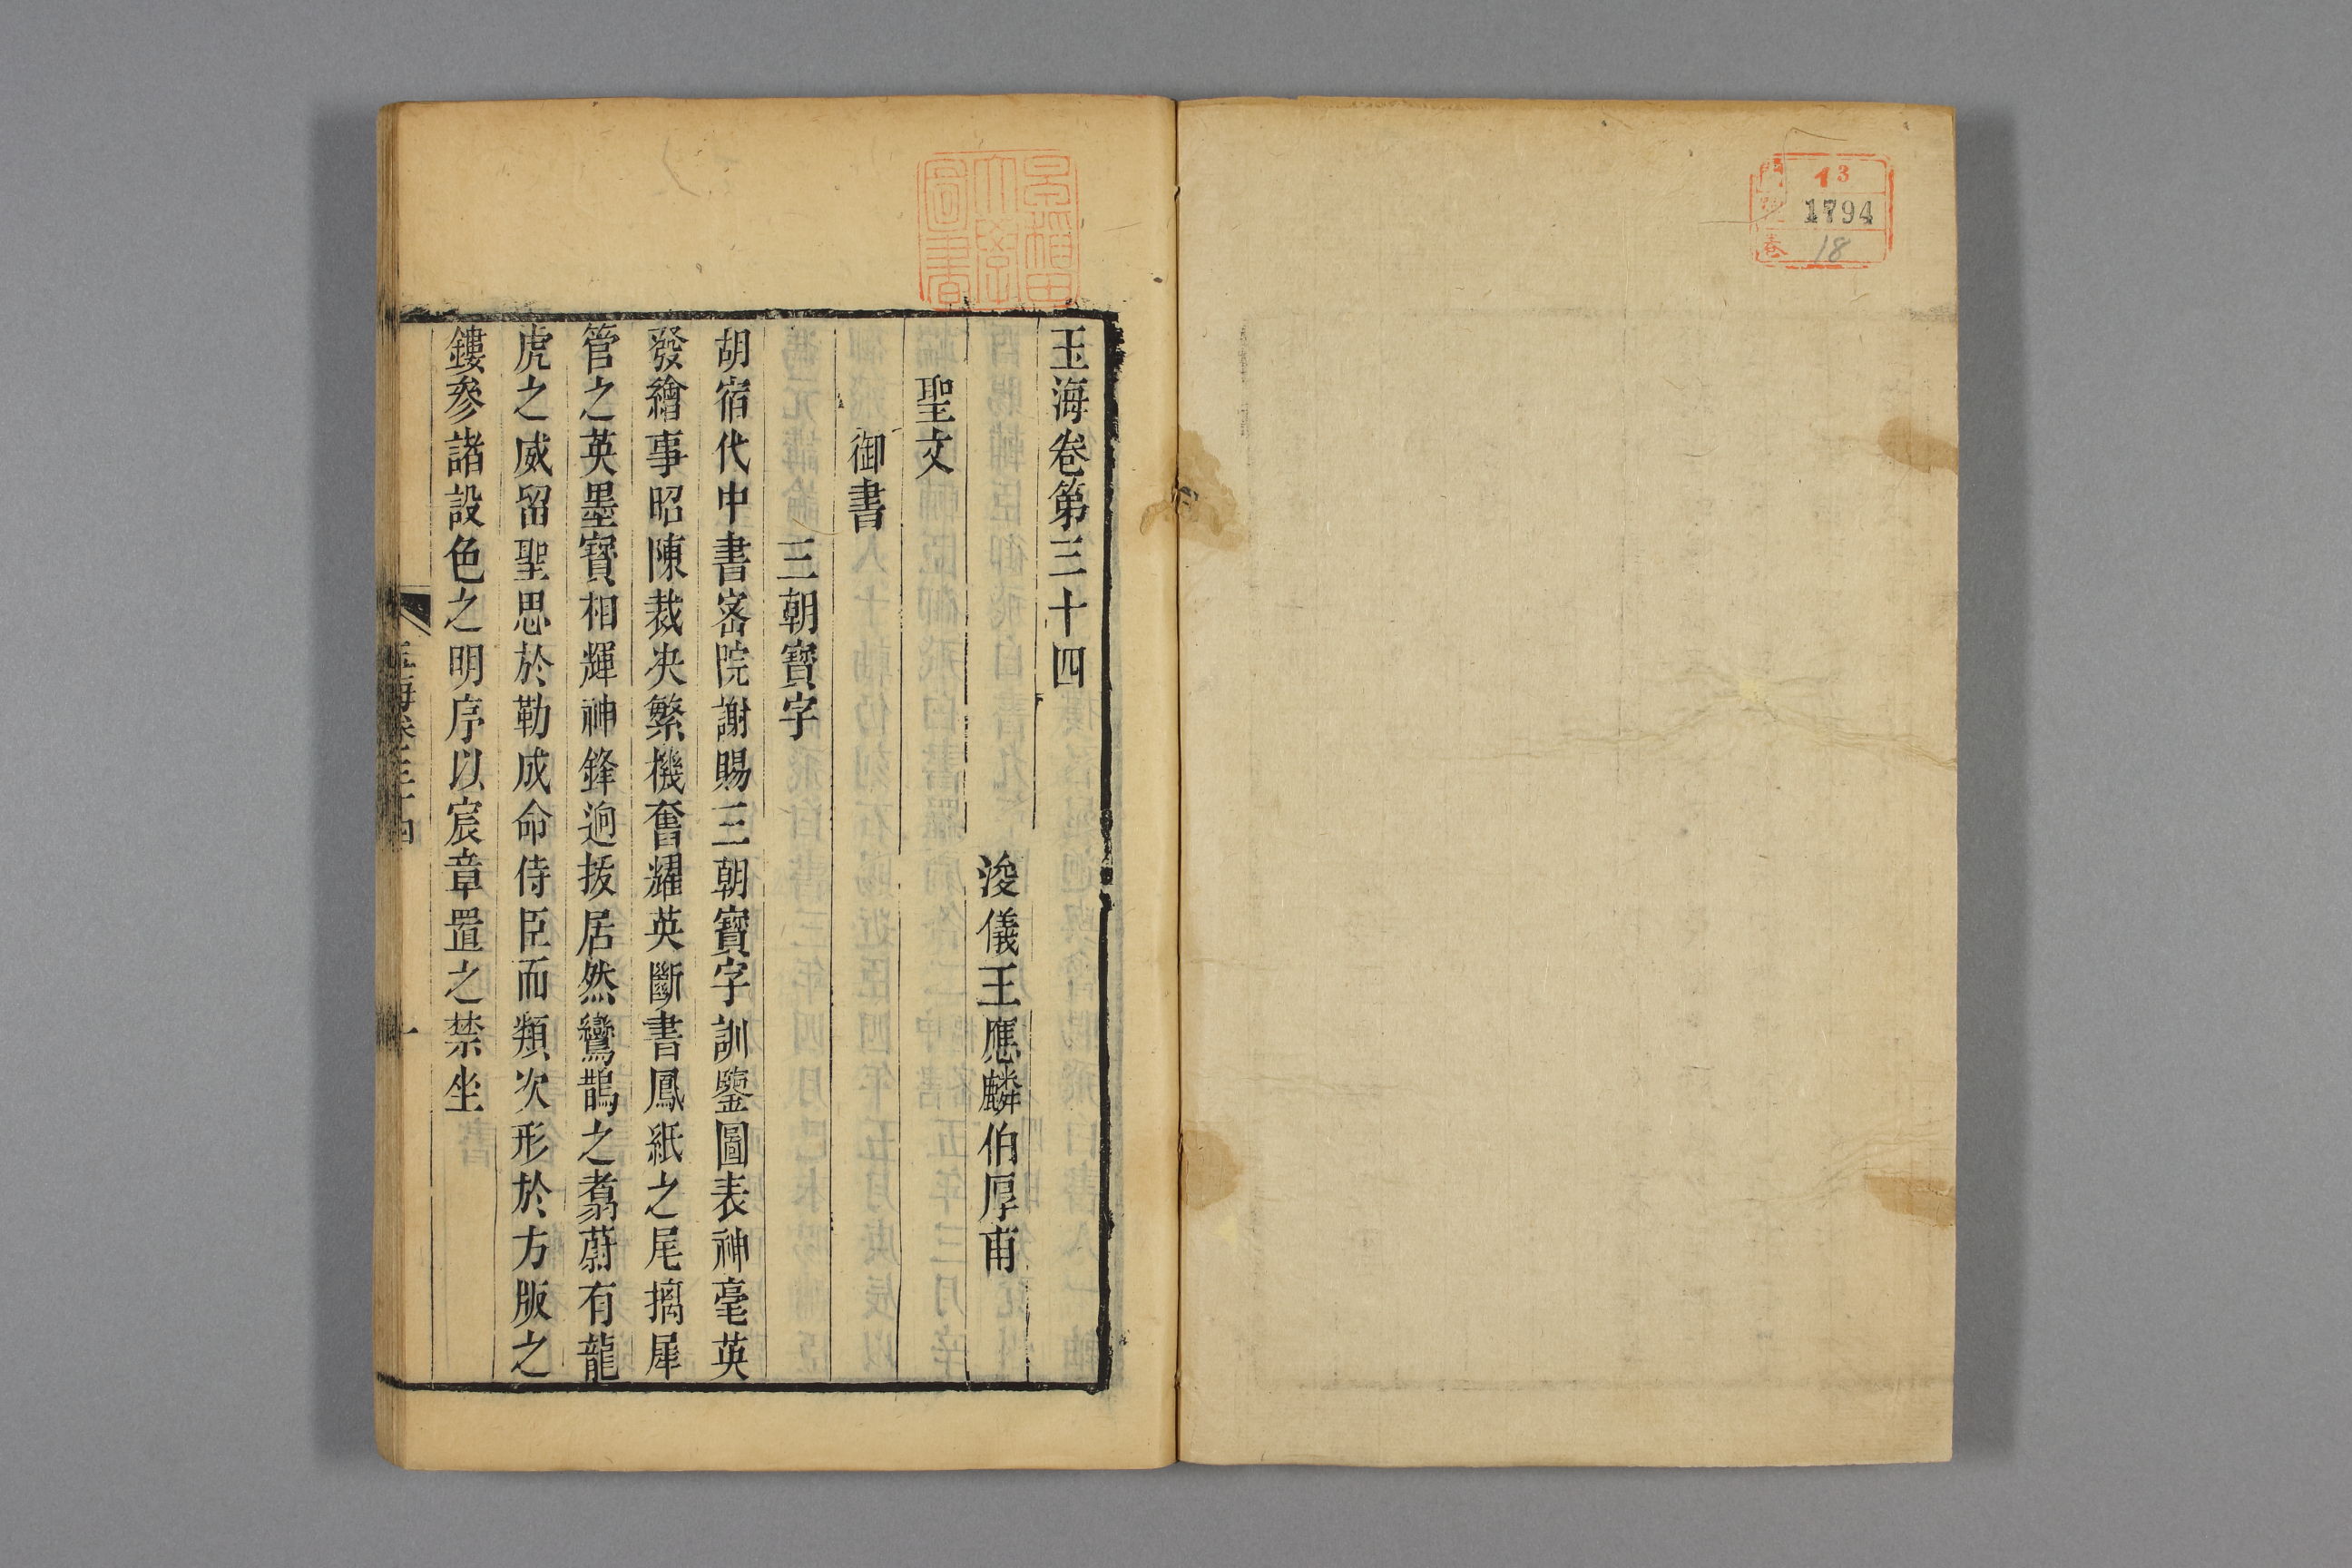 門 13
號 1794
卷 18
早稲田
大學
圖書
玉海卷第三十四
浚儀王應麟伯厚甫
聖文
御書
三朝寶字
胡宿代中書宻院謝賜三朝寶字訓鑒圖表神毫英
發繪事昭陳裁决繁機奮耀英斷書鳳紙之尾摛犀
管之英墨寶相輝神鋒逈拔居然鸞鵲之翥蔚有龍
虎之威留聖思於勒成命侍臣而類次形於方版之
鏤參諸設色之明序以宸章置之禁坐
玉海卷三十四
一